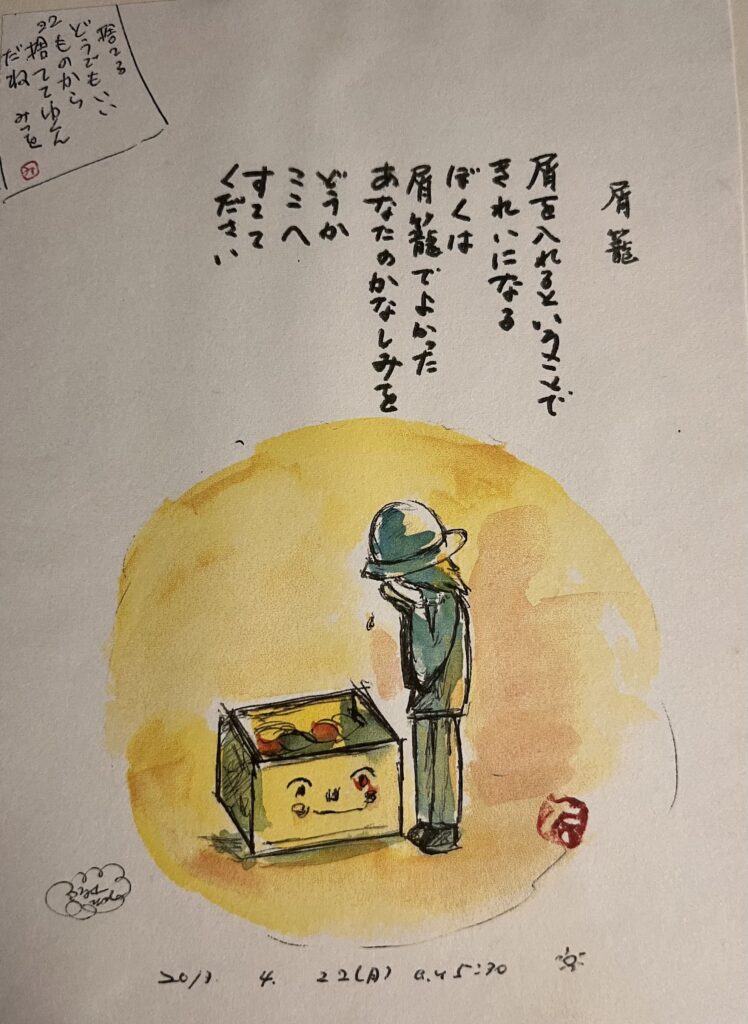 屑籠
屑を入れるということで
きれいになる
ぼくは
屑籠でよかった
あなたのかなしみを
どうか
ここへ
すてて
ください
捨てる
どうでもいい
ものから
捨ててゆくん
だね
みつを
2013. 4. 22(月) a.m 5:30